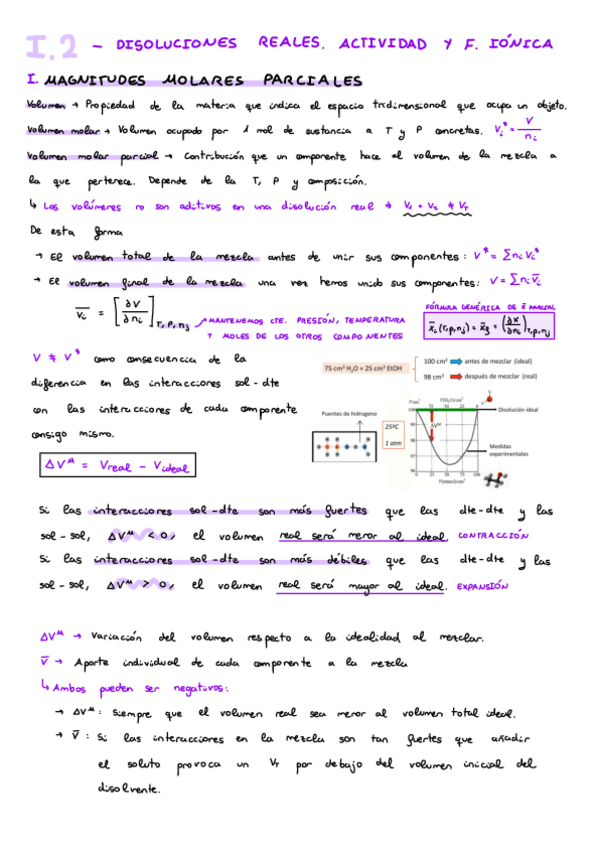 I.2 - DISOLUCIONES REALES. ACTIVIDAD Y F. IÓNICA
I. MAGNITUDES MOLARES PARCIALES
Volumen → Propiedad de la materia que indica el espacio tridimensional que ocupa un objeto.
Volumen molar → Volumen ocupado por 1 mol de sustancia a T y P concretas. Vi* = V/ni
Volumen molar parcial → Contribución que un componente hace al volumen de la mezcla a
la que pertenece. Depende de la T, P y composición.
↳ Los volúmenes no son aditivos en una disolución real → V1 + V2 ≠ VT
De esta forma
→ El volumen total de la mezcla antes de unir sus componentes: V* = Σ ni Vi*
→ El volumen final de la mezcla una vez hemos unido sus componentes: V = Σ ni V̄i
V̄i = [∂V/∂ni] T, P, nj → MANTENEMOS CTE. PRESIÓN, TEMPERATURA
Y MOLES DE LOS OTROS COMPONENTES
FÓRMULA GENÉRICA DE X̄ PARCIAL
V ≠ V* como consecuencia de la
diferencia en las interacciones sol-dte
con las interacciones de cada componente
consigo mismo.
ΔVᴹ = Vreal - Videal
75 cm³ H2O + 25 cm³ EtOH
100 cm³ antes de mezclar (ideal)
98 cm³ después de mezclar (real)
Puentes de hidrogeno
25ºC
1 atm
ΔVᴹ
Disolución ideal
Medidas
experimentales
Si las interacciones sol-dte son más fuertes que las dte-dte y las
sol-sol, ΔVᴹ < 0, el volumen real será menor al ideal. CONTRACCIÓN
Si las interacciones sol-dte son más débiles que las dte-dte y las
sol-sol, ΔVᴹ > 0, el volumen real será mayor al ideal. EXPANSIÓN
ΔVᴹ → Variación del volumen respecto a la idealidad al mezclar.
V̄ → Aporte individual de cada componente a la mezcla
↳ Ambos pueden ser negativos:
→ ΔVᴹ: Siempre que el volumen real sea menor al volumen total ideal.
→ V̄: Si las interacciones en la mezcla son tan fuertes que añadir
el soluto provoca un VT por debajo del volumen inicial del
disolvente.